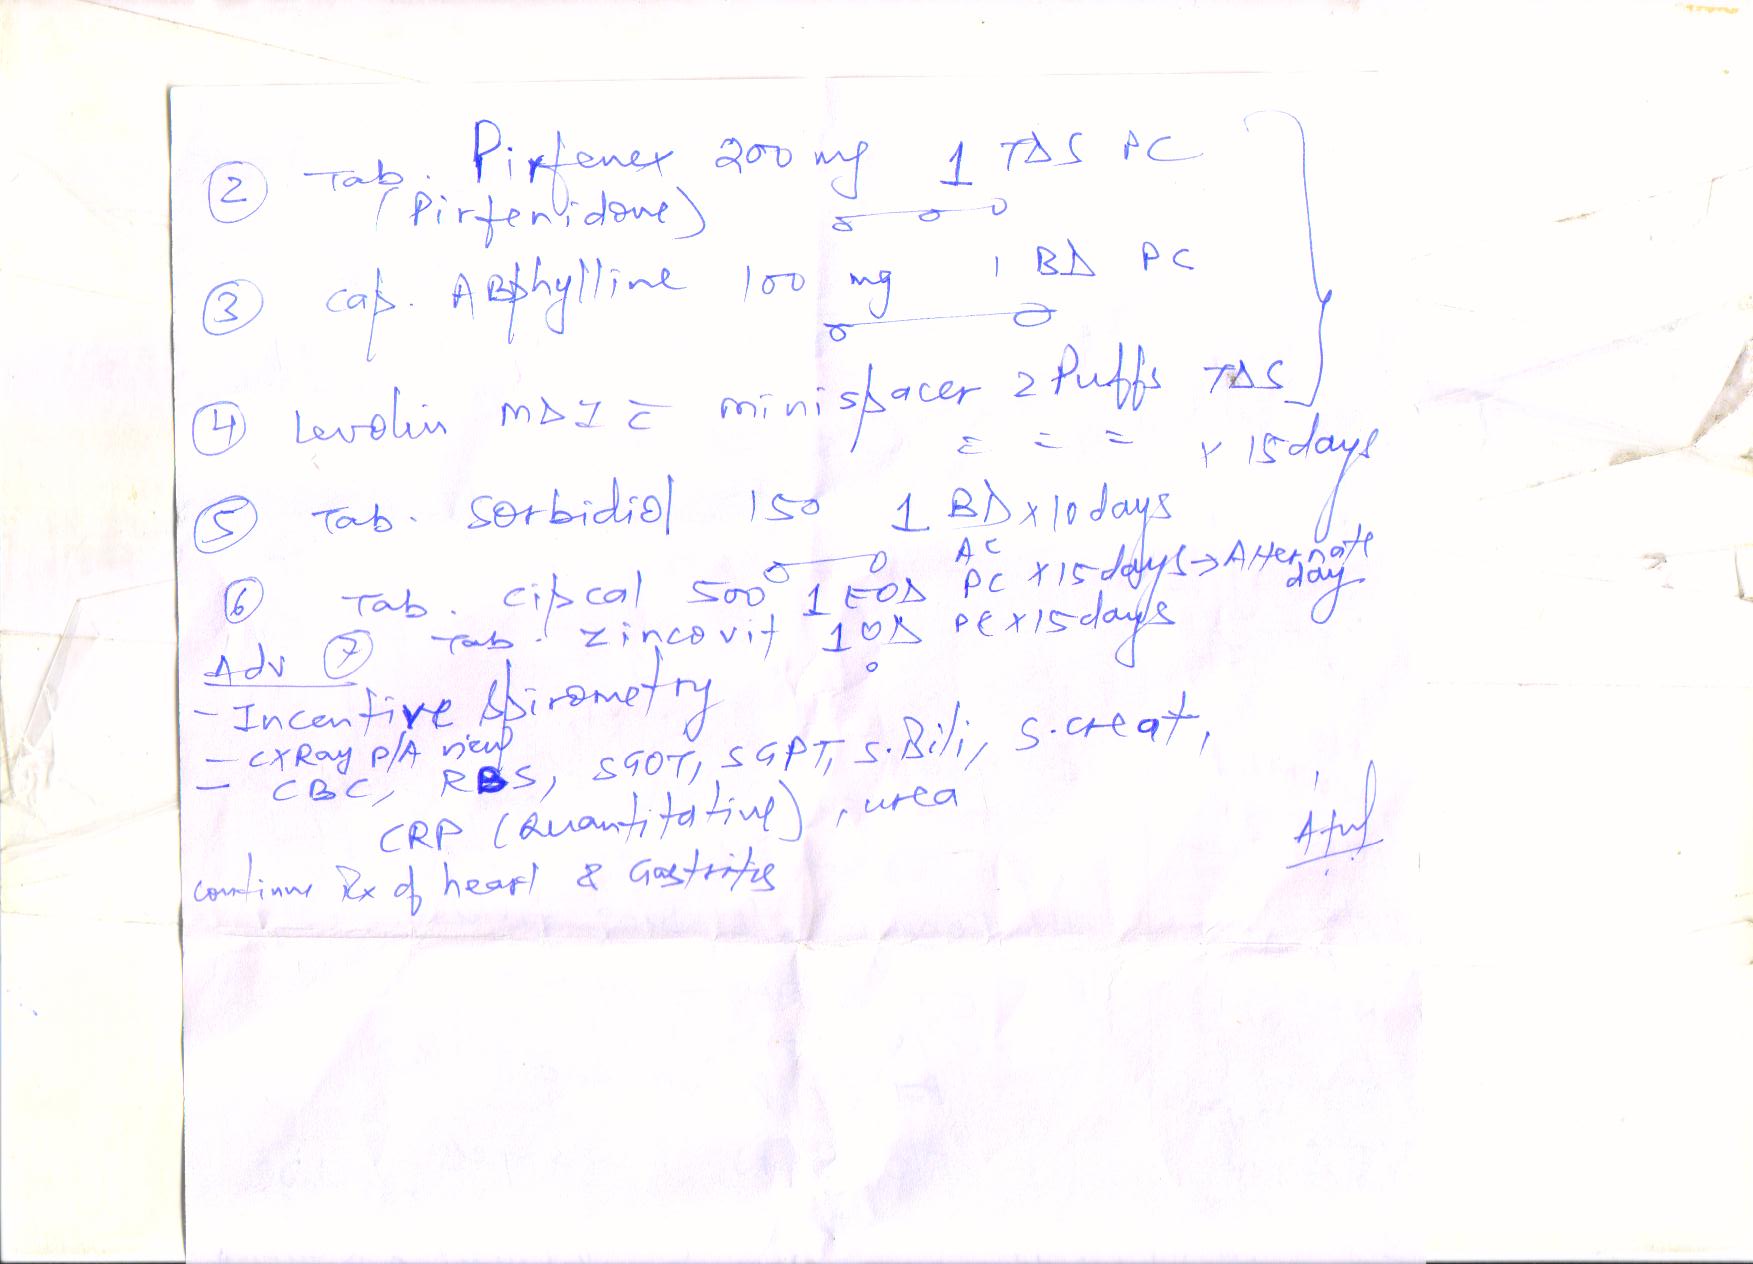 ② Tab. Pirfenex 200 mg 1 TDS PC
(Pirfenidone)
③ Cap. ABphylline 100 mg 1 BD PC
④ Levolin MDI c̄ minispacer 2 Puffs TDS
= = = x 15 days
⑤ Tab. Sorbidiol 150 1 BD x 10 days
AC
⑥ Tab. Cipcal 500 1 EOD PC x 15 days → Alternate day
⑦ Tab. Zincovit 1 OD PC x 15 days
Adv
- Incentive Spirometry
- CXRay P/A view
- CBC, RBS, SGOT, SGPT, S.Bili, S.creat,
CRP (Quantitative), urea
continue Rx of heart & Gastritis